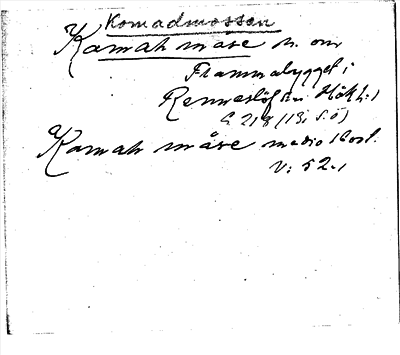 Komadmossen
Kamah måse n. om
Frammabygget i
Renneslöfs sn Hökh:d
G 218 (13; 5.ö)
Kamah måse medio 1600t.
V: 52.,